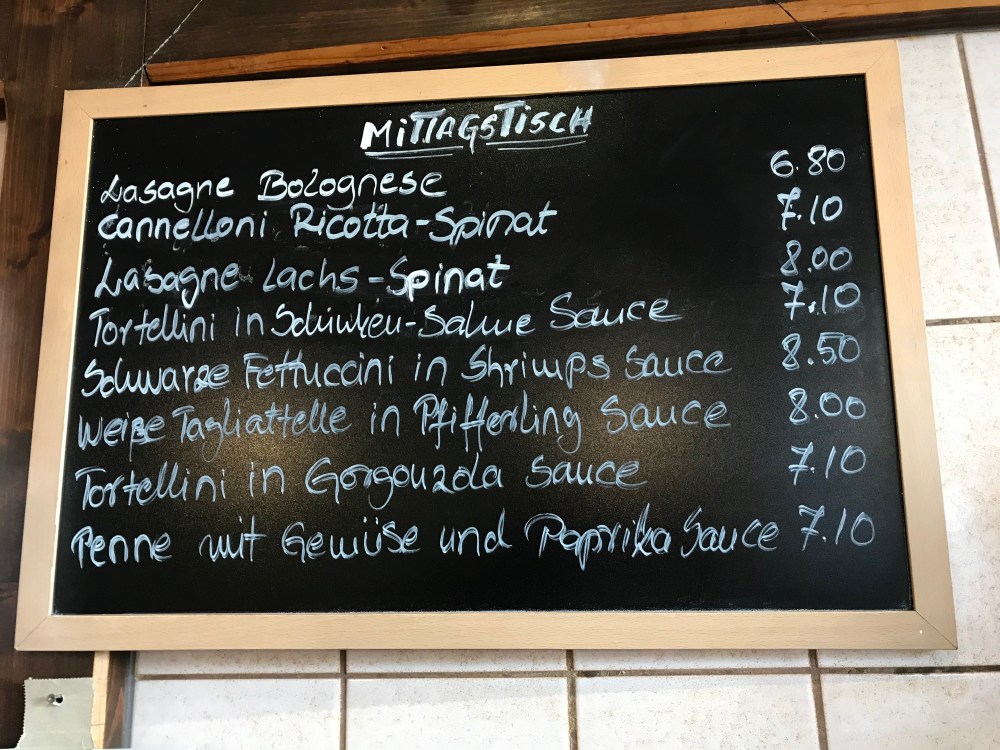 MITTAGSTISCH
Lasagne Bolognese 6.80
Cannelloni Ricotta-Spinat 7.10
Lasagne Lachs-Spinat 8.00
Tortellini in Schinken-Sahne Sauce 7.10
Schwarze Fettuccini in Shrimps Sauce 8.50
Weiße Tagliattelle in Pfifferling Sauce 8.00
Tortellini in Gorgonzola Sauce 7.10
Penne mit Gemüse und Paprika Sauce 7.10